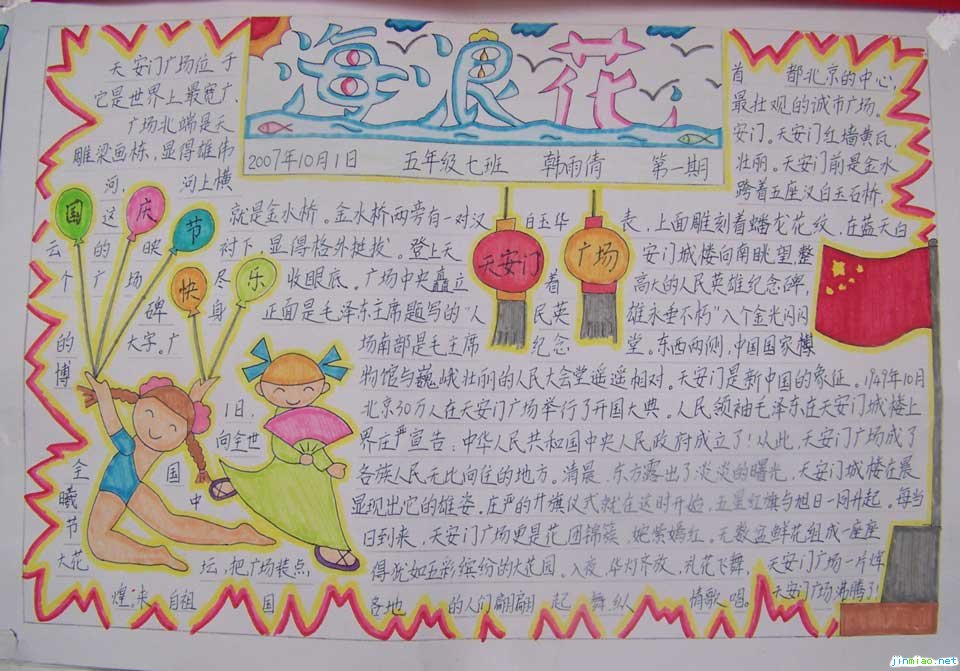 海浪花
2007年10月1日 五年级七班 韩雨倩 第一期
国庆节快乐
天安门
广场
天安门广场位于 首都北京的中心,
它是世界上最宽广、 最壮观的城市广场。
广场北端是天 安门。天安门红墙黄瓦,
雕梁画栋,显得雄伟 壮丽。天安门前是金水
河,河上横 跨着五座汉白玉石桥,
这 就是金水桥。金水桥两旁有一对汉白玉华表,上面雕刻着蟠龙花纹,在蓝天白
云的映衬下,显得格外挺拔。登上天安门城楼向南眺望,整
个广场尽收眼底。广场中央矗立着高大的人民英雄纪念碑,
碑身正面是毛泽东主席题写的“人民英雄永垂不朽”八个金光闪闪
的大字。广场南部是毛主席纪念堂。东西两侧,中国国家博
博物馆与巍峨壮丽的人民大会堂遥遥相对。天安门是新中国的象征。1949年10月
1日,北京30万人在天安门广场举行了开国大典。人民领袖毛泽东在天安门城楼上
向全世界庄严宣告:中华人民共和国中央人民政府成立了!从此,天安门广场成了
全国各族人民无比向往的地方。清晨,东方露出了淡淡的曙光,天安门城楼在晨
曦中显现出它的雄姿。庄严的升旗仪式就在这时开始,五星红旗与旭日一同升起。每当
节日到来,天安门广场更是花团锦簇,姹紫嫣红。无数盆鲜花组成一座座
大花坛,把广场装点得犹如五彩缤纷的大花园。入夜,华灯齐放,礼花飞舞,天安门广场一片辉
煌。来自祖国各地的人们翩翩起舞,纵情歌唱。天安门广场沸腾了!
jinmiao.net